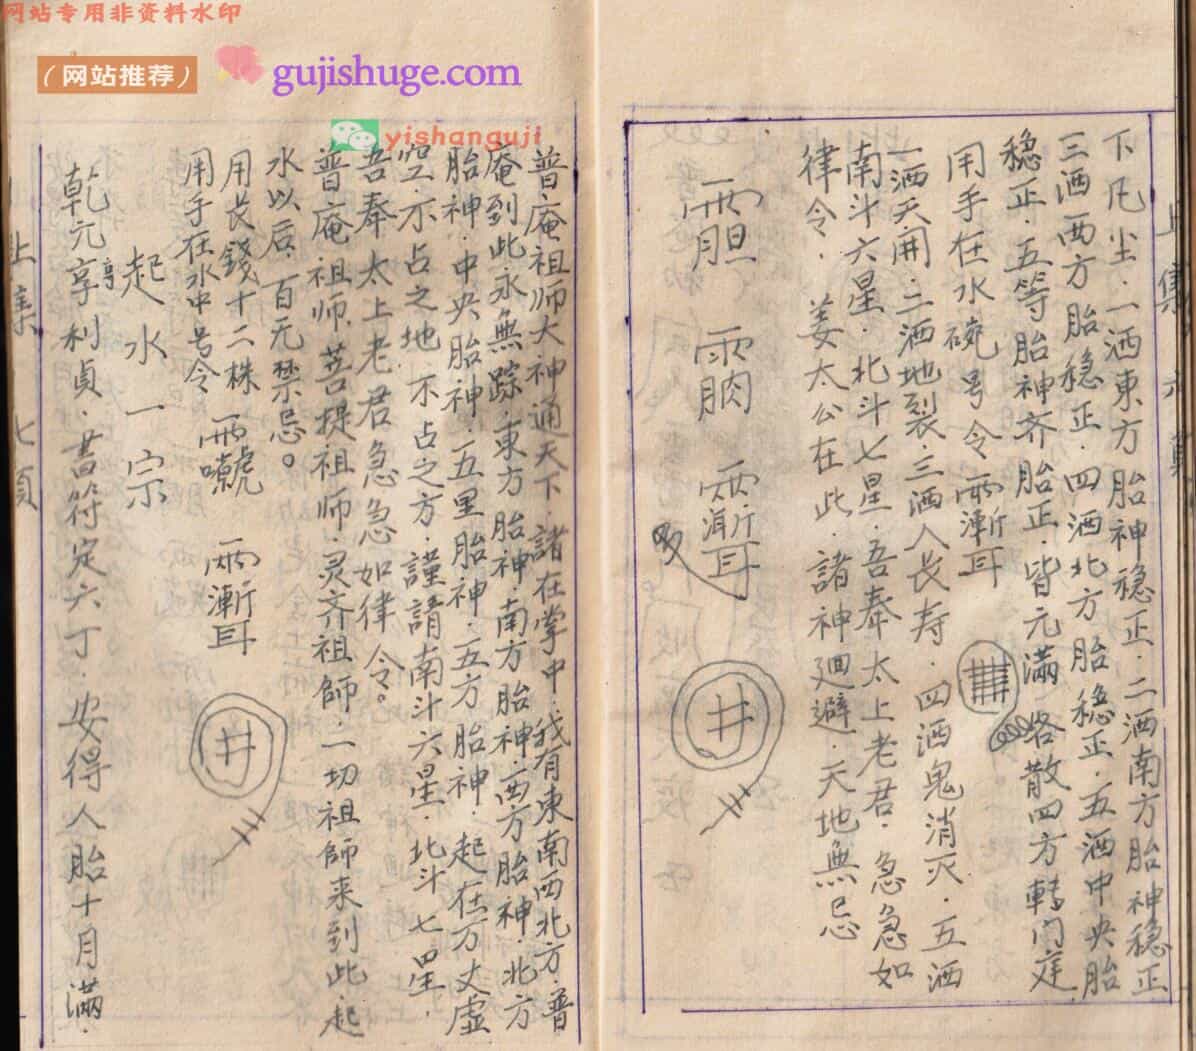 网站专用非资料水印
(网站推荐)
gujishuge.com
yishanguji
下凡尘·一洒東方胎神穏正·二洒南方胎神穏正
三洒西方胎穏正·四洒北方胎穏正·五洒中央胎
穏正·五等胎神齐胎正·皆元满各散四方轉门庭
用手在水碗号令
一洒天開·二洒地裂·三洒人长寿·四洒鬼消灭·五洒
南斗六星·北斗七星·吾奉太上老君·急急如
律令·姜太公在此·諸神廻避·天地無忌
普庵祖师大神通天下·諸在掌中·我有東南西北方·普
庵到此永無踪·東方胎神·南方胎神·西方胎神·北方
胎神·中央胎神·五里胎神·五方胎神·起在万丈虚
空·不占之地不占之方·謹請南斗六星·北斗七星·
吾奉太上老君急急如律令。
普庵祖师·菩提祖师·灵齐祖師·一切祖師来到此·起
水以后·百无禁忌。
用长錢十二株
用手在水中号令
起水一宗
乾元享利貞·書符定六丁·安得人胎十月满·
亨
上集
七頁
上集